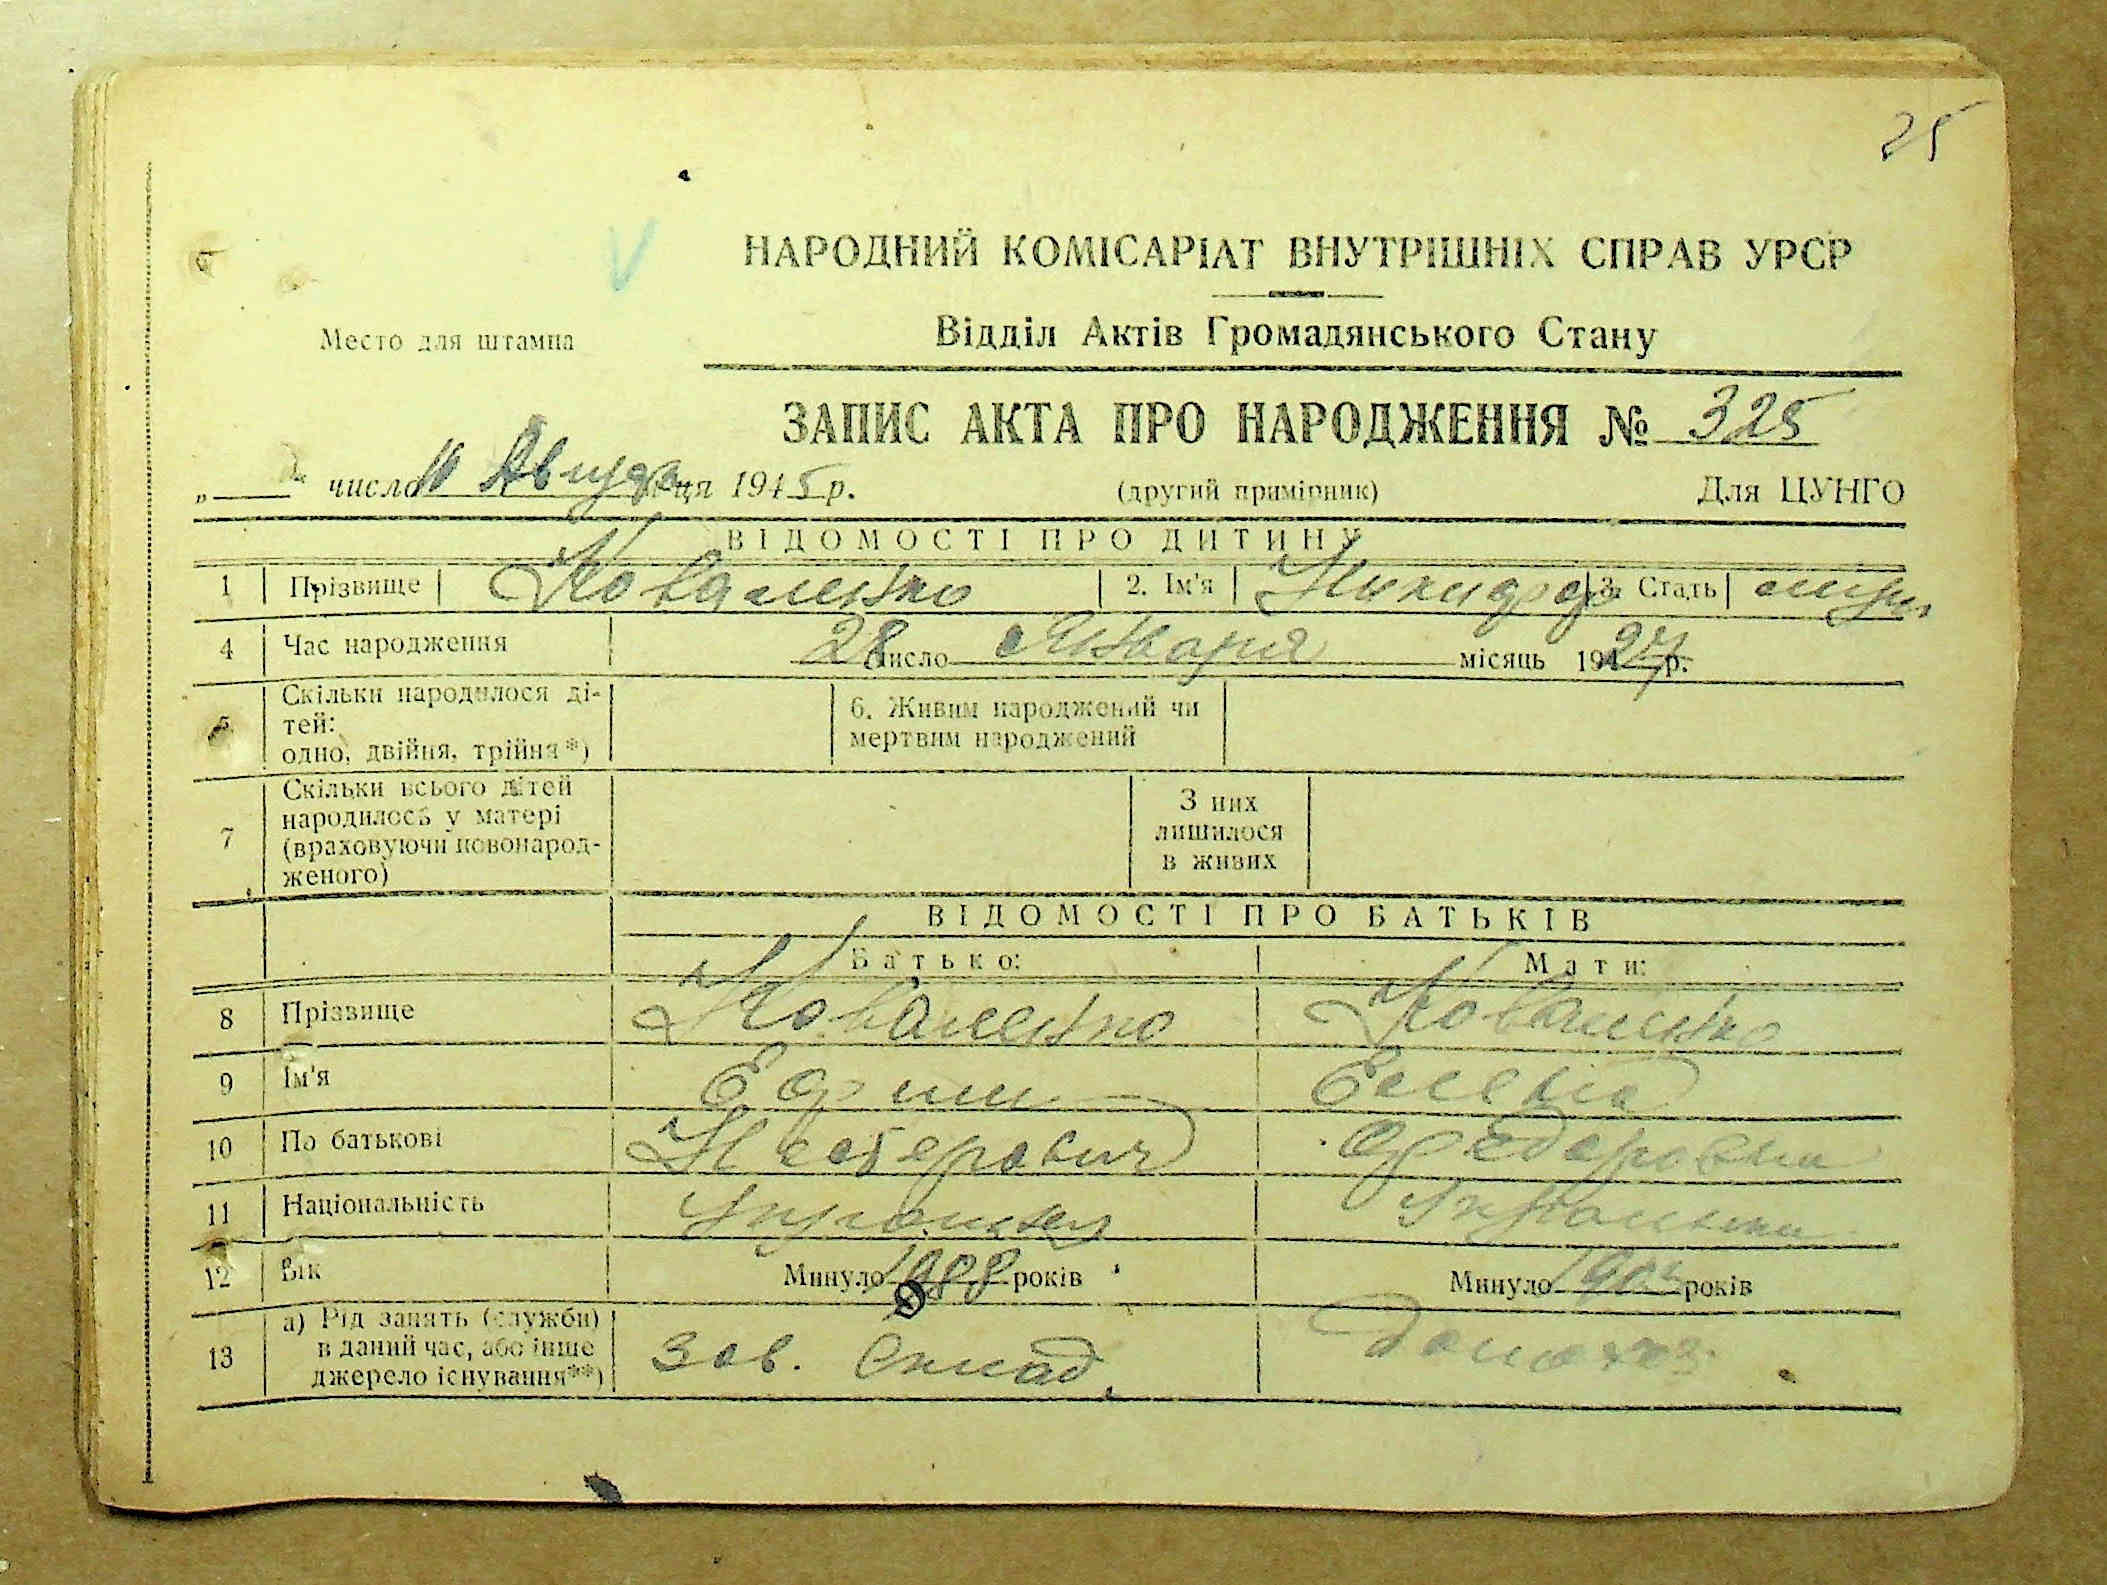 25
НАРОДНИЙ КОМІСАРІАТ ВНУТРІШНІХ СПРАВ УРСР
Место для штампа
Відділ Актів Громадянського Стану
ЗАПИС АКТА ПРО НАРОДЖЕННЯ № 325
„ число Августа 1945 р. (другий примірник) Для ЦУНГО
ВІДОМОСТІ ПРО ДИТИНУ
1 Прізвище Коваленко 2. Ім'я Никифор 3. Стать
4 Час народження 28 число Января місяць 1927 р.
5 Скільки народилося ді-
тей:
одно, двійня, трійня*)
6. Живим народжений чи
мертвим народжений
7 Скільки всього дітей
народилось у матері
(враховуючи новонарод-
женого)
З них
лишилося
в живих
ВІДОМОСТІ ПРО БАТЬКІВ
Батько: Мати:
8 Прізвище Коваленко Коваленко
9 Ім'я Ефим Елена
10 По батькові Нестерович Федоровна
11 Національність Украинец Украинка
12 Вік Минуло років Минуло років
13 а) Рід занять (служби)
в даний час, або інше
джерело існування**)
Зав. Склад. Домохоз.